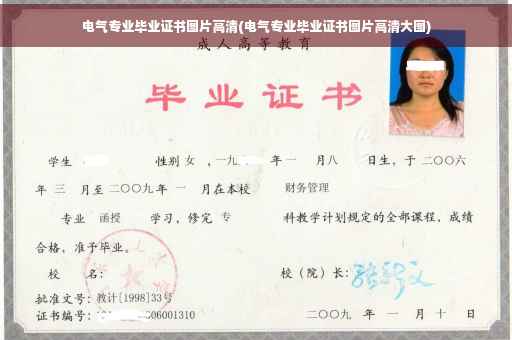 电气专业毕业证书图片高清(电气专业毕业证书图片高清大图)
成人高等教育
毕业证书
学生 性别 女 ，一九 年 一 月 八 日生，于 二〇〇六
年 三 月至 二〇〇九 年 一 月在本校 财务管理
专业 函授 学习，修完 专 科教学计划规定的全部课程，成绩
合格，准予毕业。
校 名： 校（院）长：
批准文号：教计[1998]33号
证书编号：1 606001310 二〇〇九 年 一 月 十 日